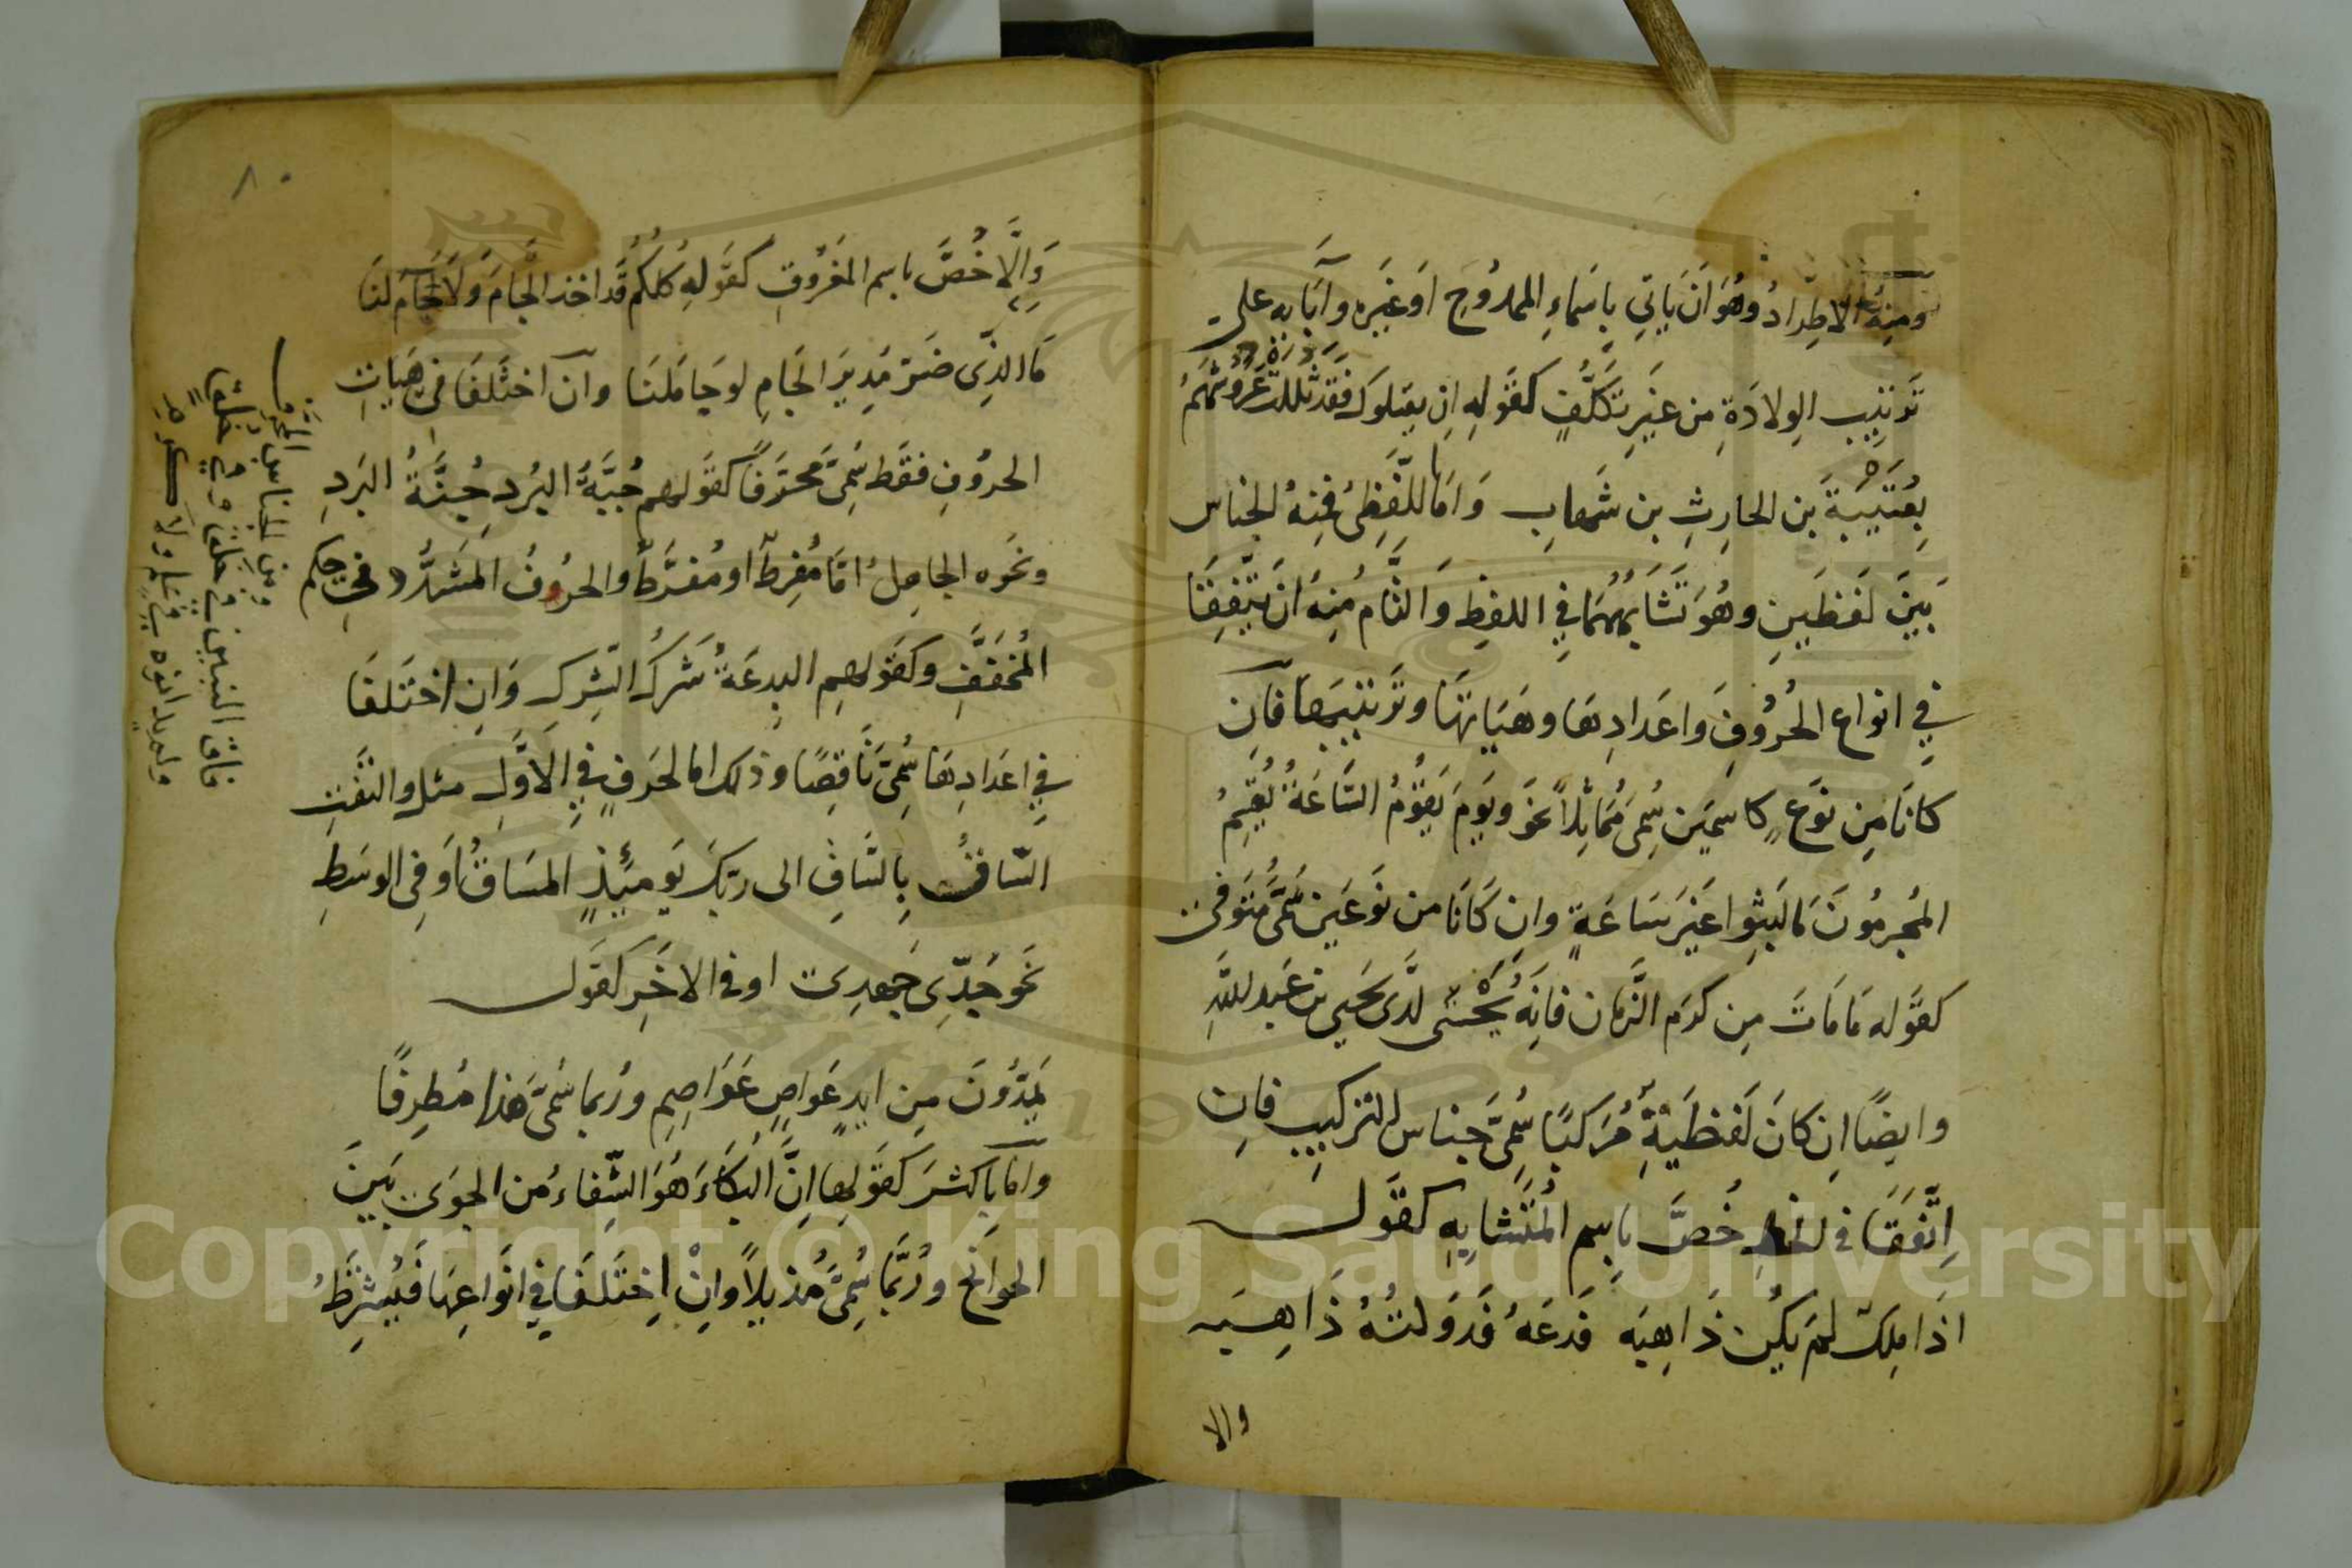 ومنه الاطراد وهو ان ياتي باسماء الممدوح او غيره وآبايه على
ترتيب الولادة من غير تكلف كقوله ان يقتلوك فقد ثللت عروشهم
بعتيبة بن الحارث بن شهاب واما اللفظى فمنه الجناس
بين لفظين وهو تشابههما في اللفظ والتام منه ان يتفقا
في انواع الحروف واعدادها وهياتها وترتيبها فان
كانا من نوع كاسمين سمى مماثلا نحو ويوم يقوم الساعة يقسم
المجرمون ما لبثوا غير ساعة وان كانا من نوعين سمى مستوفى
كقوله ما مات من كرم الزمان فانه يحيى لدى يحيى بن عبد الله
وايضا ان كان لفظية مركبا سمى جناس التركيب فان
اتفقا فى الخط خص باسم المتشابه كقول
اذا ملك لم يكن ذاهبه فدعه فدولته ذاهبه
والا
٨٠
والا خص باسم المفروق كقوله كلكم قد اخذ الجام ولا جام لنا
ما الذى ضر مدير الجام لو جاملنا وان اختلفا فى هيات
الحروف فقط سمى محرفا كقولهم جبة البرد جنة البرد
ونحوه الجاهل اما مفرط او مفرط والحروف المشدد فى حكم
المخفف وكقولهم البدعة شرك الشرك وان اختلفا
في اعدادها سمى ناقصا وذلك اما لحرف في الاول مثل والتفت
الساق بالساق الى ربك يومئذ المساق او فى الوسط
نحو جدى جهدى او فى الاخر كقول
يمدون من ايد عواص عواصم وربما سمى هذا مطرفا
واما باكثر كقولها ان البكاء هو الشفاء من الجوى بين
الجوانح وربما سمى مذيلا وان اختلفا في انواعها فيشترط
ومن الجناس المحرف
فاق النبيين في خلق وفي خلق
ولم يدانوه في علم ولا كرم